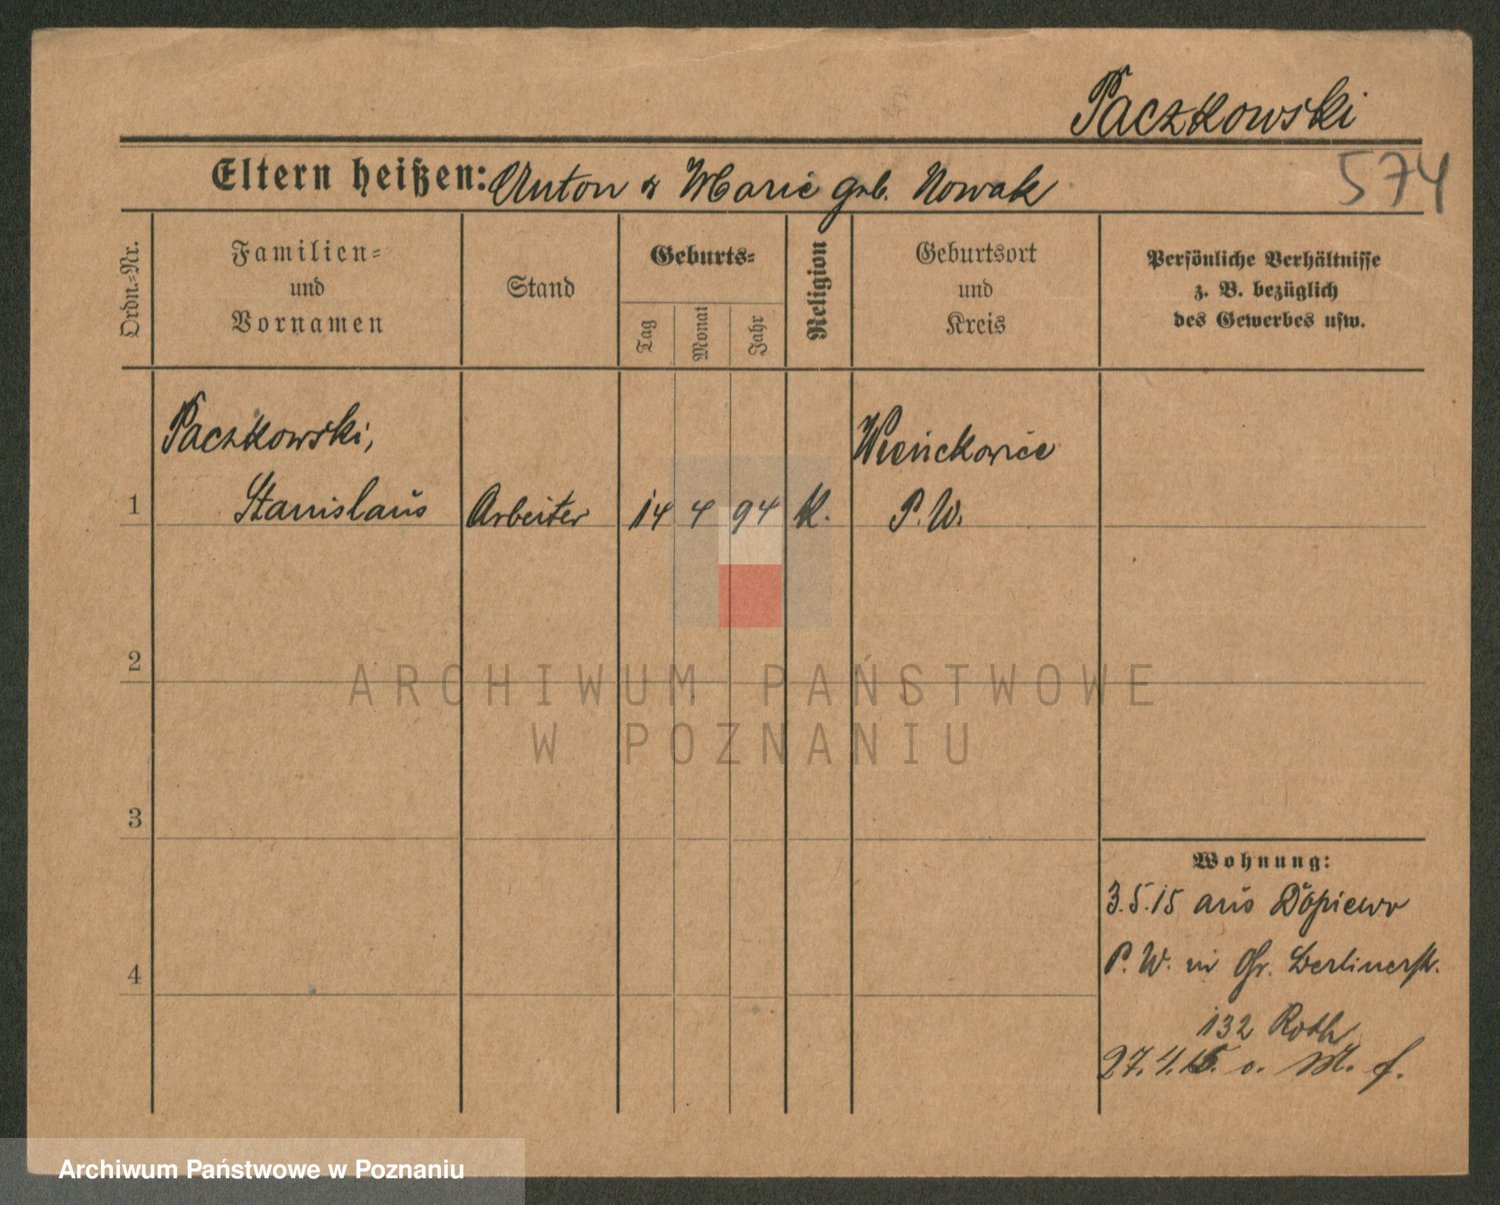 Paczkowski
574
Eltern heißen: Anton & Marie geb. Nowak
Ordn.-Nr.
Familien-
und
Vornamen
Stand
Geburts-
Tag
Monat
Jahr
Religion
Geburtsort
und
Kreis
Persönliche Verhältnisse
z. B. bezüglich
des Gewerbes usw.
Paczkowski,
Wienckowice
1 Stanislaus Arbeiter 14 4 94 K. P. W.
2
ARCHIWUM PAŃSTWOWE
W POZNANIU
3
Wohnung:
3.5.15 aus Dopiewo
P. W. in Gr. Berlinerstr.
4
132 Roth
27.4.15. o. M. f.
Archiwum Państwowe w Poznaniu